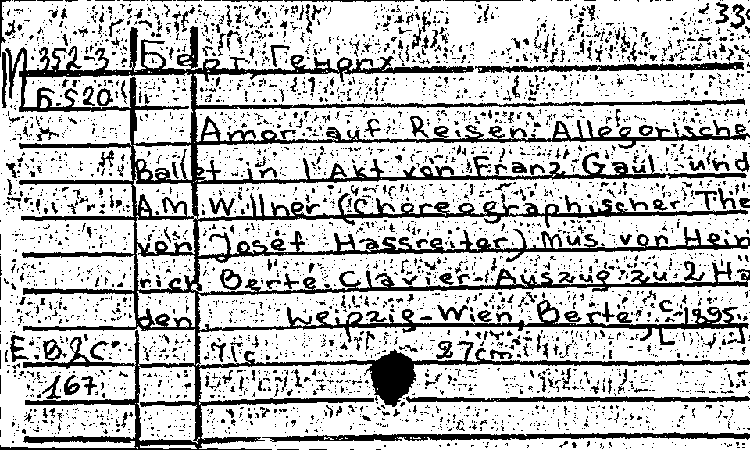 33
М 352-3 Берт, Генрих
Б.520
Amor auf Reisen: Allegorische
Ballet in 1 Akt von Franz Gaul und
A.M. Willner (Choreographischer The
von Josef Hassreiter) Mus. von Hein
rich Berté. Clavier-Auszug zu 2 Ha
den. Leipzig-Wien, Berté c. 1895.
E.B.2C. 71c. 27cm
167